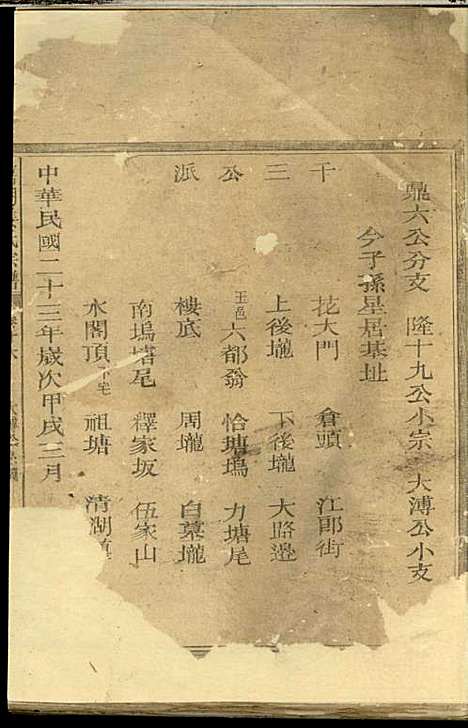 鼎六公分支　隆十九公小宗　大溥公小支
今子孫星居基址
千三公派
花大門　倉頭　江郎街
上後壠　下後壠　大路邊
玉邑六都翁　恰塘塢　力塘尾
樓底　周壠　白墓壠
南塢塘尾　釋家坂　伍家山
水閣頂下宅　祖塘　清湖鎮
中華民國二十三年歲次甲戌三月
氏宗譜